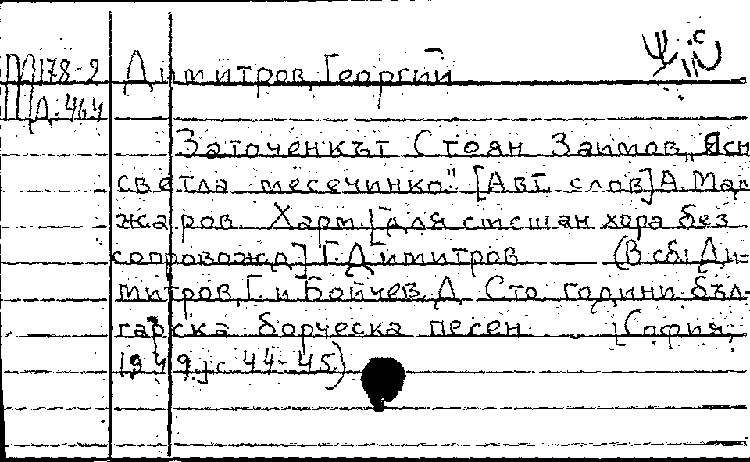 Димитров, Георгий
Заточенкът Стоян Заимов „Ясн
светла месечинко." [Авт. слов] А. Мал
жаров Харм. [для смешан хора без
сопровожд] Г. Димитров (В сб: Ди-
митров, Г. и Бойчев, Д. Сто години бъл-
гарска борческа песен [София,
1949, с 44-45)